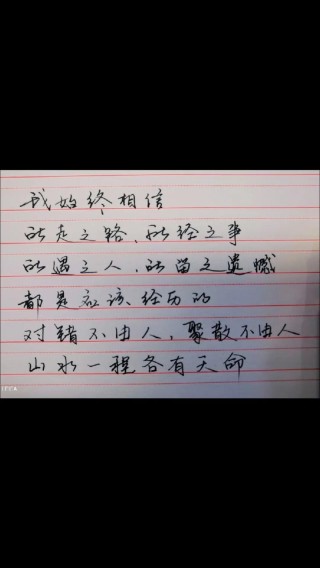 我始终相信
所走之路、所经之事
所遇之人、所留之遗憾
都是应该、经历的
对错不由人，聚散不由人
山水一程各有天命